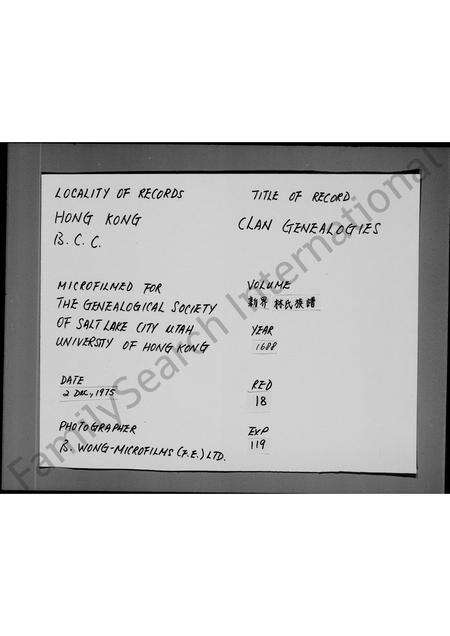 LOCALITY OF RECORDS
HONG KONG
B. C. C.
TITLE OF RECORD
CLAN GENEALOGIES
MICROFILMED FOR
THE GENEALOGICAL SOCIETY
OF SALT LAKE CITY UTAH
UNIVERSTY OF HONG KONG
VOLUME
新界 林氏族譜
YEAR
1688
DATE
2 DEC., 1975
RED
18
PHOTOGRAPHER
B. WONG-MICROFILMS (F.E.) LTD.
EXP
119
FamilySearch International